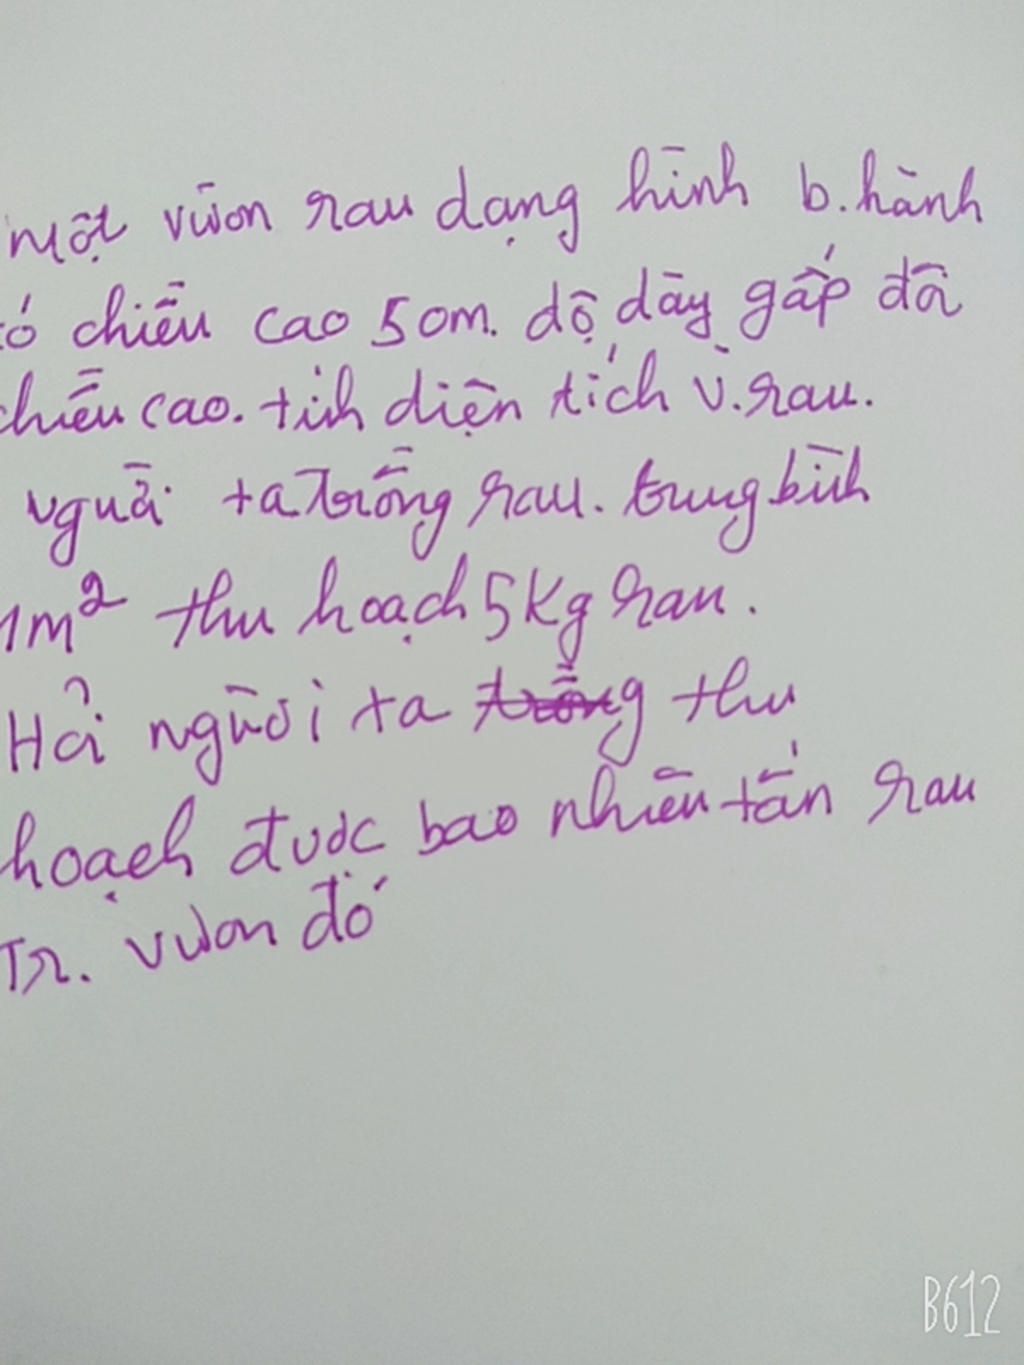 Một vườn rau dạng hình b.hành
có chiều cao 50m. độ dày gấp đôi
chiều cao. tính diện tích v.rau.
người ta trồng rau. trung bình
1m² thu hoạch 5kg rau.
Hỏi người ta trồng thu
hoạch được bao nhiêu tấn rau
Tr. vườn đó
B612